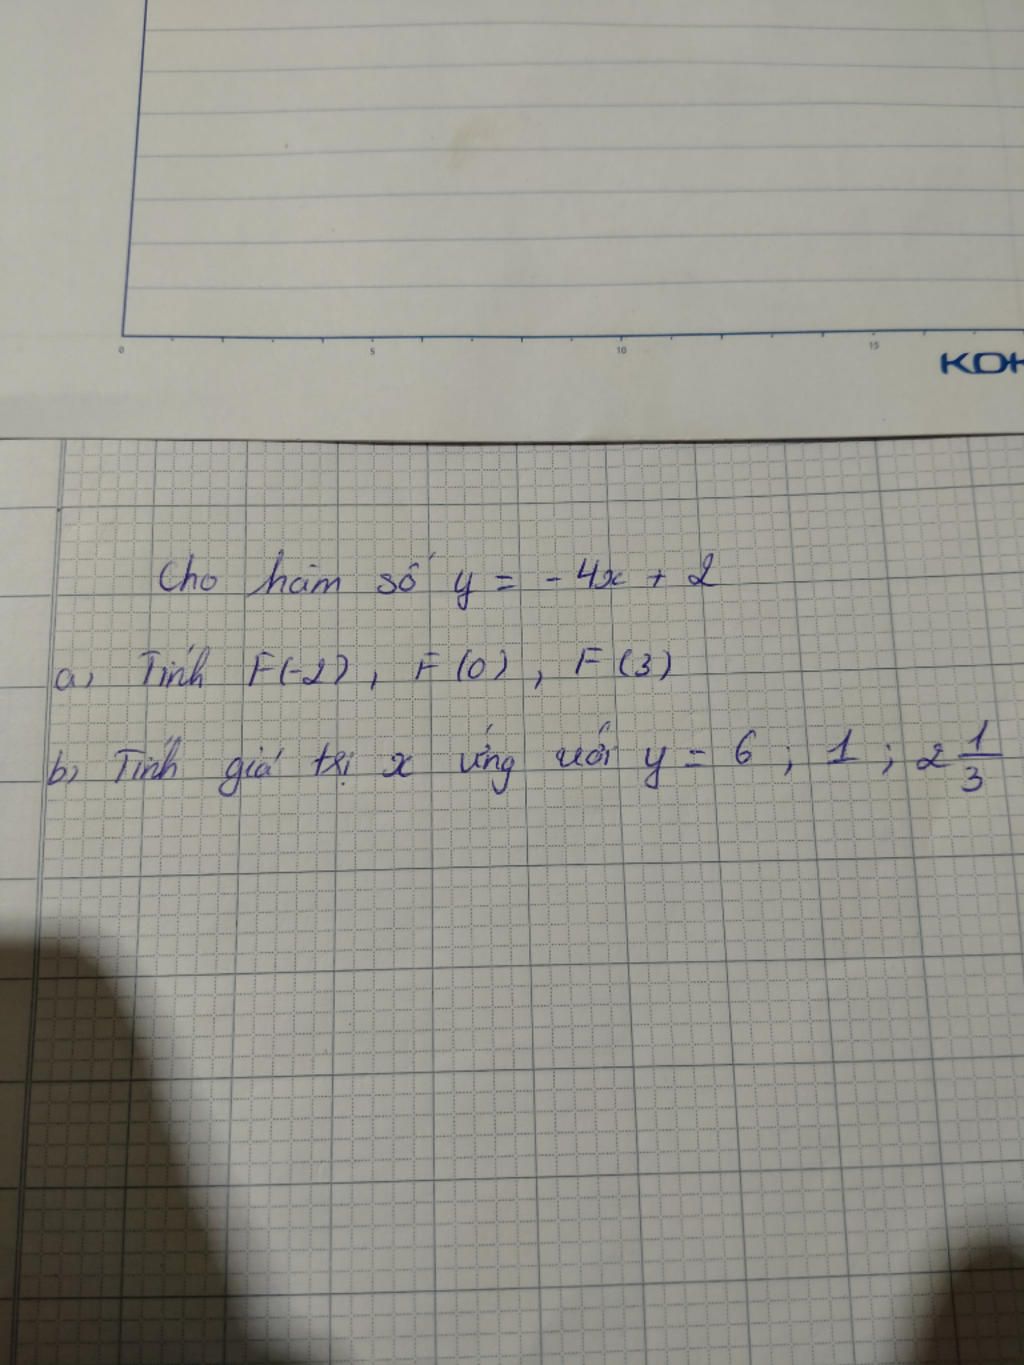 0 5 10 15
KOK
Cho hàm số y = -4x + 2
a, Tính F(-2), F(0), F(3)
b, Tính giá trị x ứng với y = 6; 1; 2 1/3